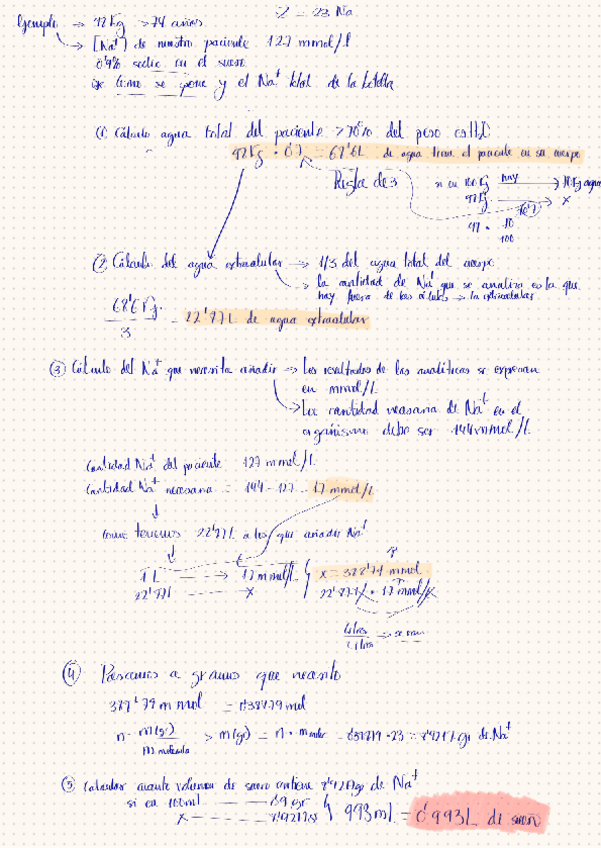 Z = 23 Na
Ejemplo → 92Kg > 74 años
→ [Na+] de nuestro paciente 127 mmol/l
0'9% sodio en el suero
Como se pone y el Na+ total de la botella
① Cálculo agua total del paciente > 70% del peso es H2O
92Kg · 0'7 = 67'6L de agua tiene el paciente en su cuerpo
Regla de 3 si en 100 Kg hay → 70Kg agua
97Kg → x
97 · 70
100
② Cálculo del agua extracelular → 1/3 del agua total del cuerpo
→ la cantidad de Na+ que se analiza es la que
hay fuera de las células → la extracelular
68'6 Kg
3 = 22'87L de agua extracelular
③ Cálculo del Na+ que necesita añadir → Los resultados de las analíticas se expresan
en mmol/L
→ La cantidad necesaria de Na+ en el
organismo debe ser 144mmol/L
Cantidad Na+ del paciente 127 mmol/L
Cantidad Na+ necesaria = 144 - 127 = 17 mmol/L
como tenemos 22'87L a los que añadir Na+
1L → 17 mmol/L } x = 388'79 mmol
22'87L → x 22'87 L · 17 mmol/L
Litros
Litros → se van
④ Pasamos a gramos que necesito
388'79 mmol = 0'38879 mol
n = m(gr) > m(gr) = n · m molec = 0'38879 · 23 = 8'9217gr de Na+
m molecula
⑤ Calcular cuanto volumen de suero contiene 8'9217gr de Na+
si en 100ml — 0'9 gr } 993ml = 0'993L de suero
x — 8'9217gr